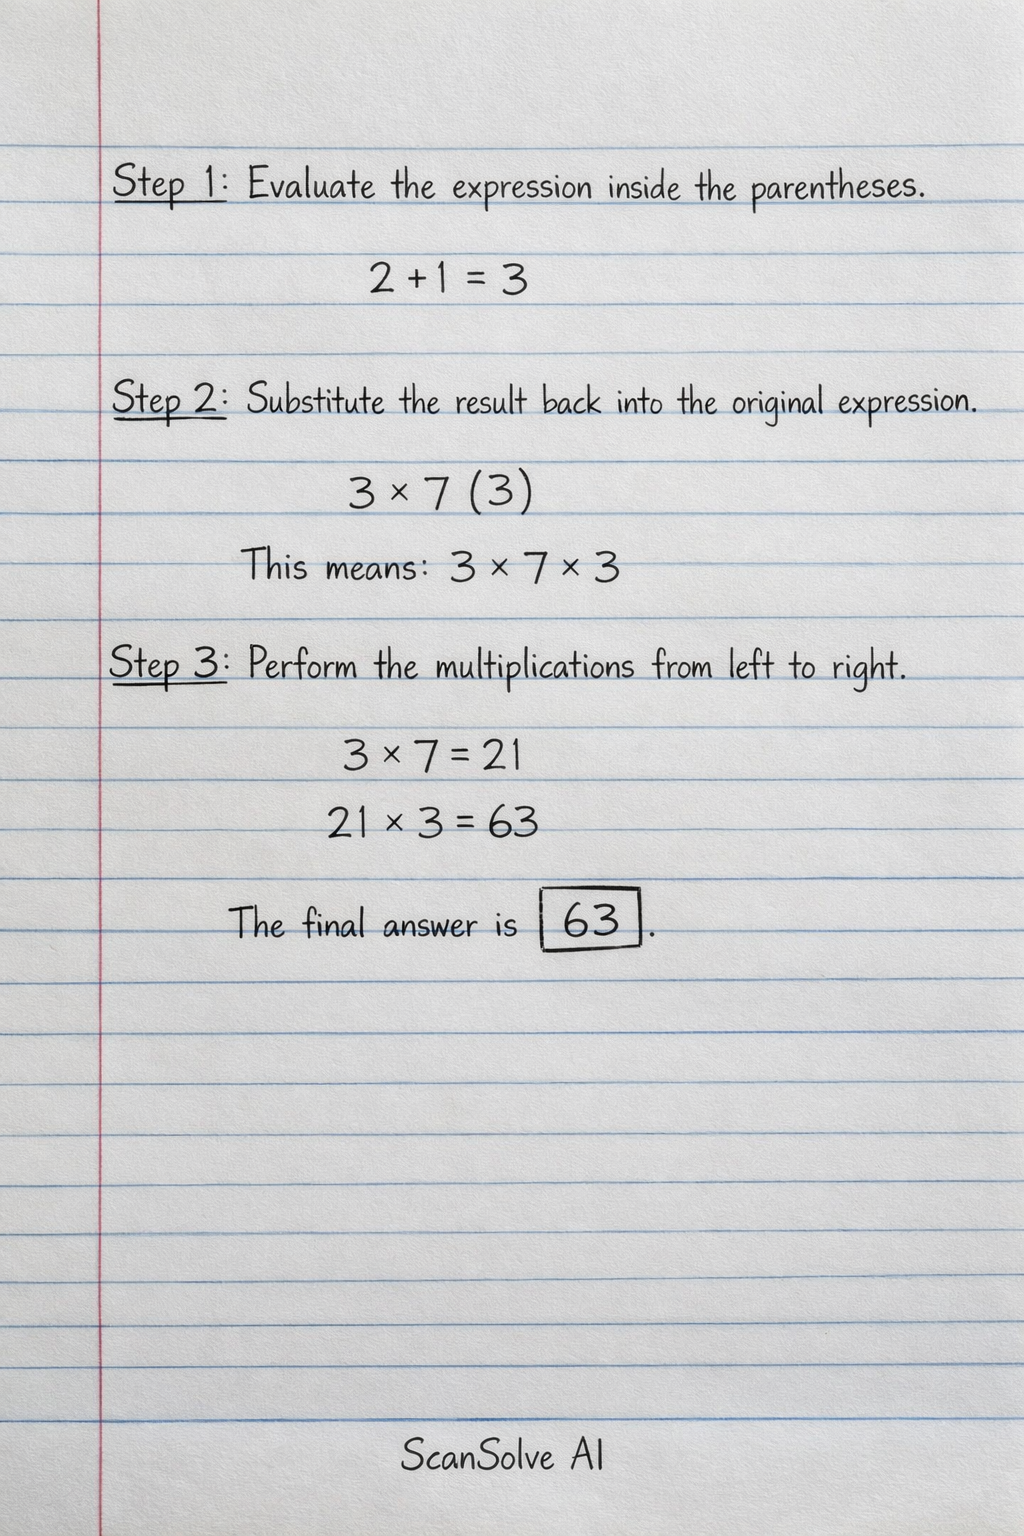 Step 1: Evaluate the expression inside the parentheses.
2 + 1 = 3
Step 2: Substitute the result back into the original expression.
3 × 7 (3)
This means: 3 × 7 × 3
Step 3: Perform the multiplications from left to right.
3 × 7 = 21
21 × 3 = 63
The final answer is 63.
ScanSolve AI